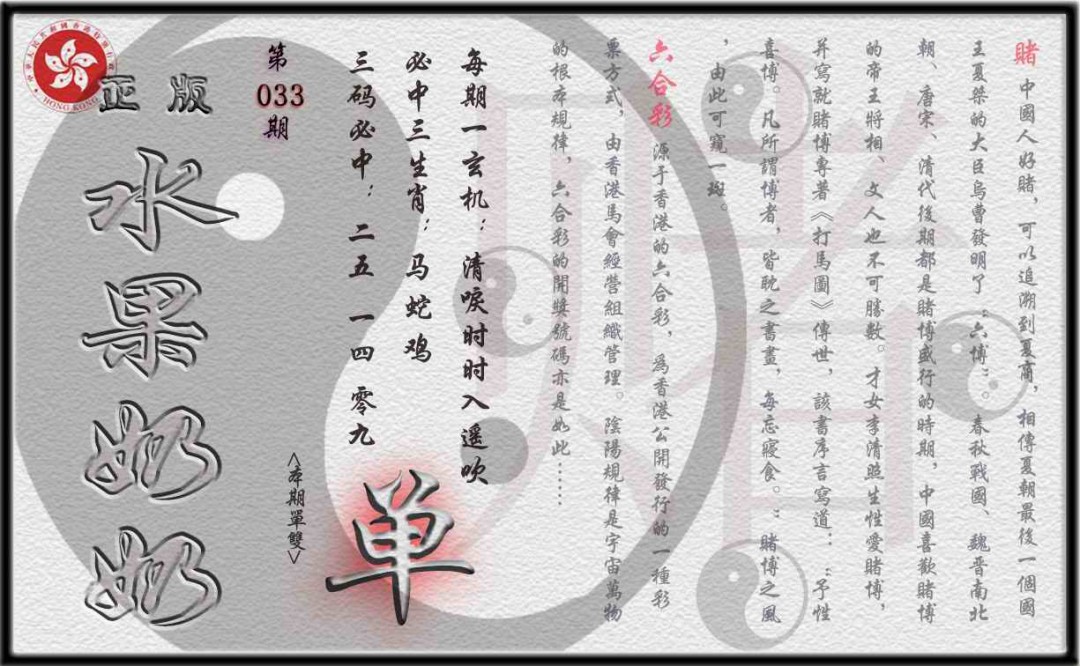 賭 中國人好賭，可以追溯到夏商，相傳夏朝最後一個國
王夏桀的大臣烏曹發明了“六博”。春秋戰國、魏晉南北
朝、唐宋、清代後期都是賭博盛行的時期，中國喜歡賭博
的帝王將相、文人也不可勝數。才女李清照生性愛賭博，
并寫就賭博專著《打馬圖》傳世，該書序言寫道：“予性
喜博。凡所謂博者，皆耽之晝書，每忘寢食。”賭博之風
，由此可窺一斑。
六合彩 源于香港的六合彩，為香港公開發行的一種彩
票方式，由香港馬會經營組織管理。陰陽規律是宇宙萬物
的根本規律，六合彩的開獎號碼亦是如此……
每期一玄机：清唳时时入遥吹
必中三生肖：马蛇鸡
三码必中：二五 一四 零九
单
<本期單雙>
第
033
期
正版
水果奶奶
HONG KONG